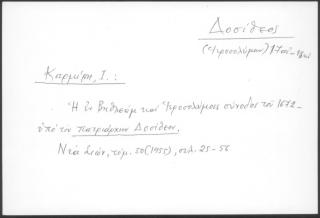 Δοσίθεος
(Ἱεροσολύμων) 17ος-18ος
Καρμίρη, Ι.:
Ἡ ἐν Βηθλεέμ καί Ἱεροσολύμοις σύνοδος τοῦ 1672
ὑπό τόν πατριάρχην Δοσίθεον,
Νέα Σιών, τόμ. 50 (1955), σελ. 25-56